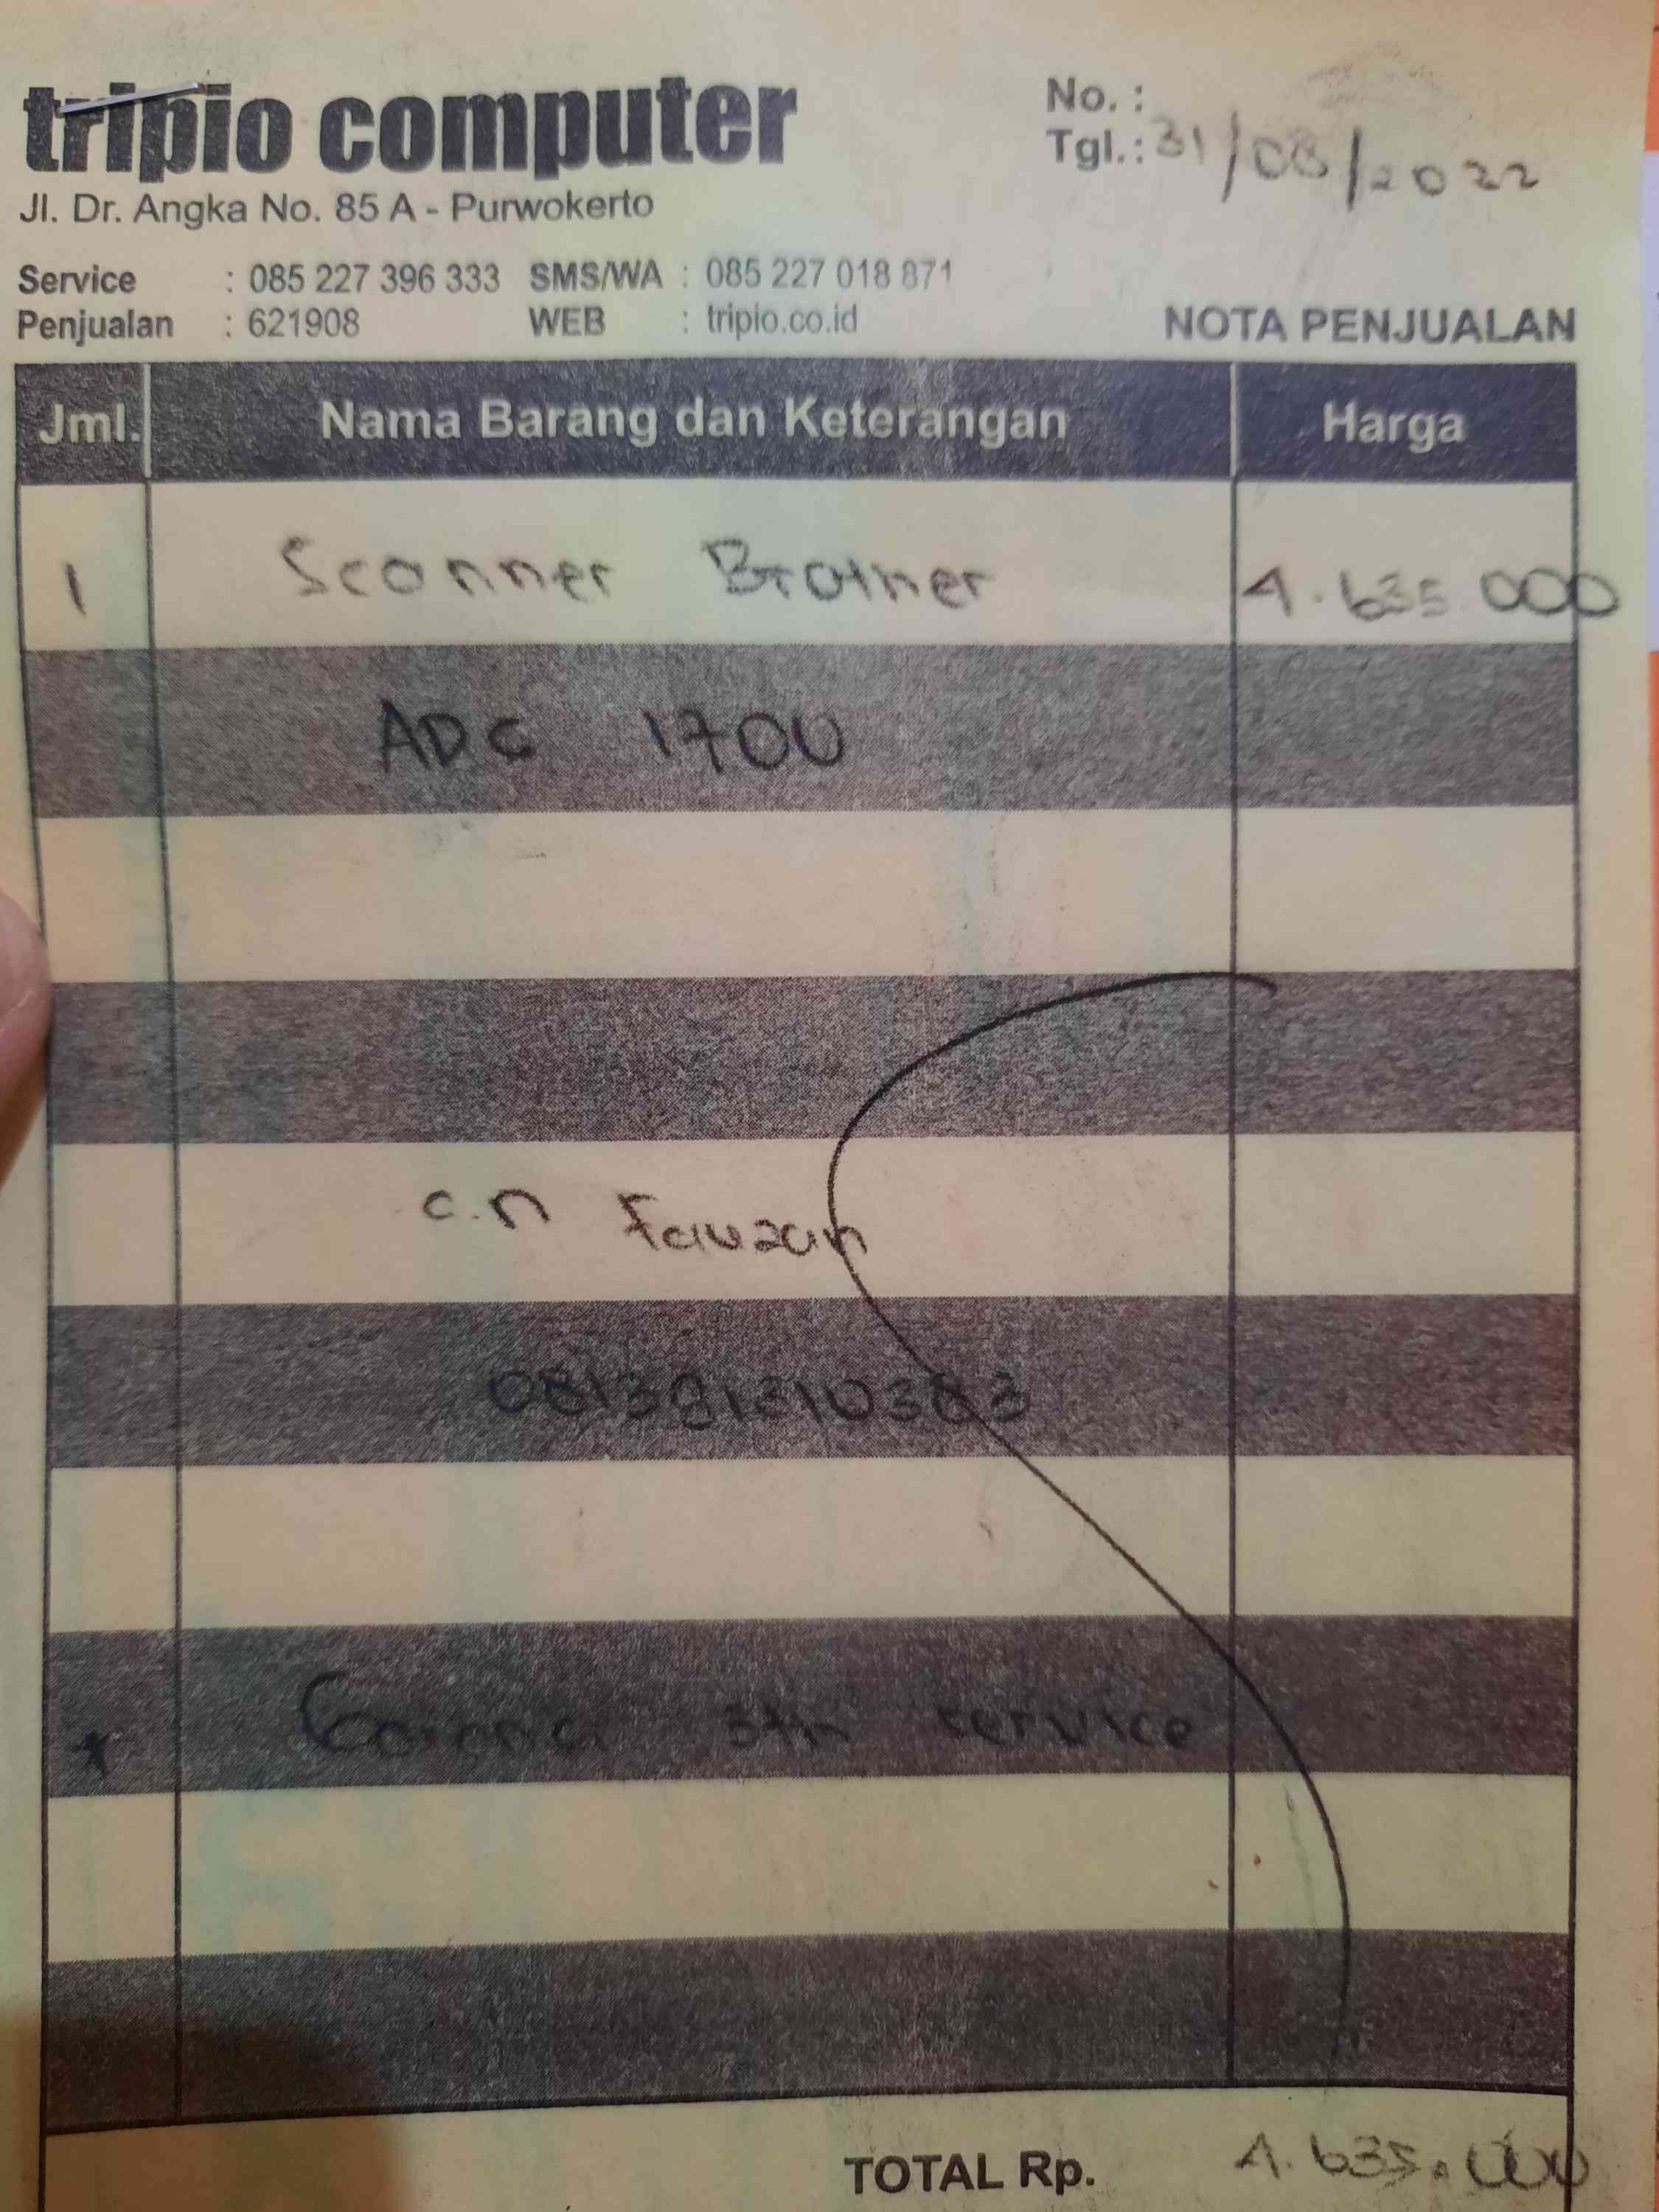 tripio computer
Jl. Dr. Angka No. 85 A - Purwokerto
No. :
Tgl.: 31/08/2022
Service : 085 227 396 333 SMS/WA : 085 227 018 871
Penjualan : 621908 WEB : tripio.co.id
NOTA PENJUALAN
Jml. Nama Barang dan Keterangan Harga
1 Scanner Brother 4.635.000
1700
c.n Fauzan
* 3th service
TOTAL Rp. 4.635.000